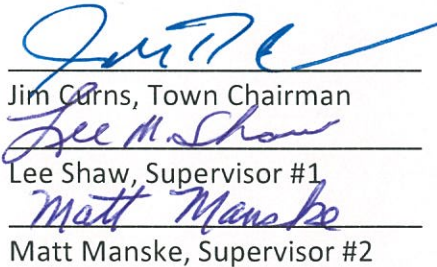 Jim Curns, Town Chairman
Lee M. Shaw
Lee Shaw, Supervisor #1
Matt Manske
Matt Manske, Supervisor #2